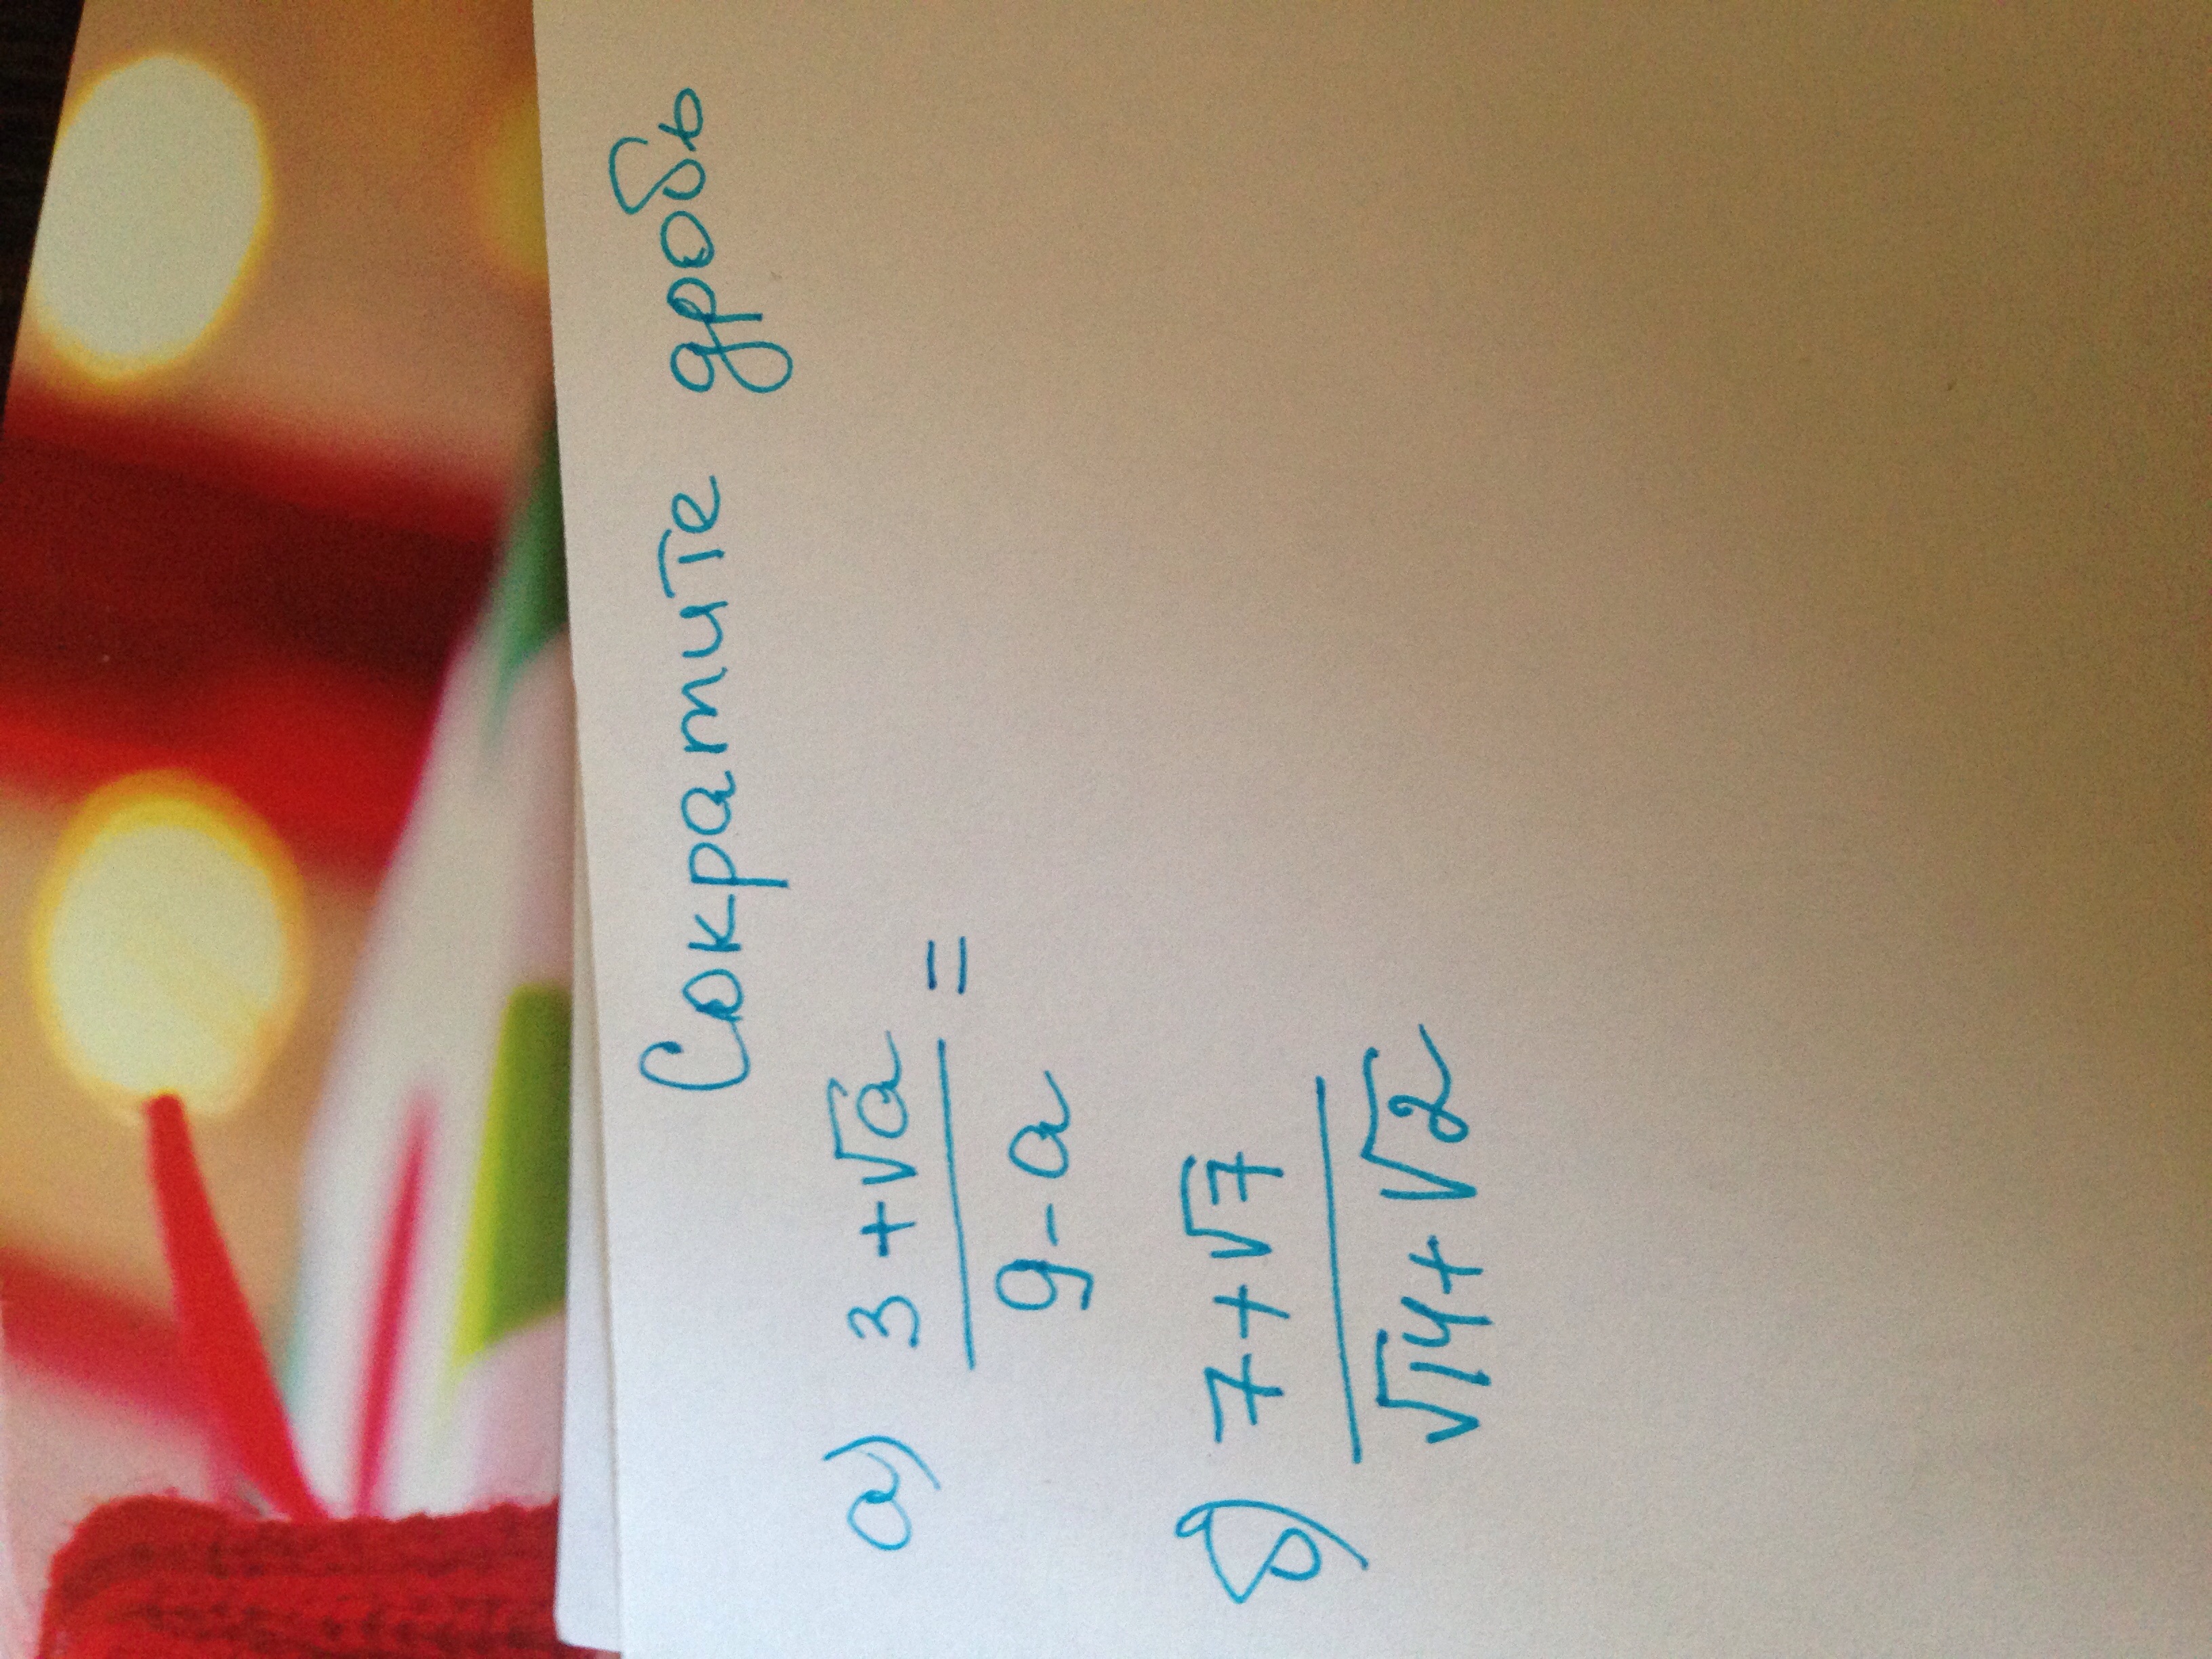 Сократите дробь
а) 3+√a / 9-a =
б) 7+√7 / √14+√2